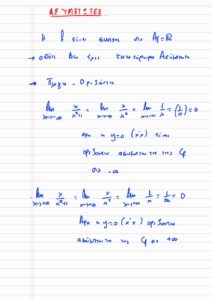 ΑΣΥΜΠΤΩΤΕΣ
Η f είναι συνεχής στο Af=ℝ
→ οπότε δεν έχει κατακόρυφη Ασύμπτωτη
→ Οριζόντια
lim x→-∞ x/x²+1 = lim x→-∞ x/x² = lim x→-∞ 1/x = = 0
άρα η y=0 (x'x) είναι
οριζόντια ασύμπτωτη της Cf
στο -∞
lim x→+∞ x/x²+1 = lim x→+∞ x/x² = lim x→+∞ 1/x = 1/∞ = 0
Άρα η y=0 (x'x) οριζόντια
ασύμπτωτη της Cf στο +∞